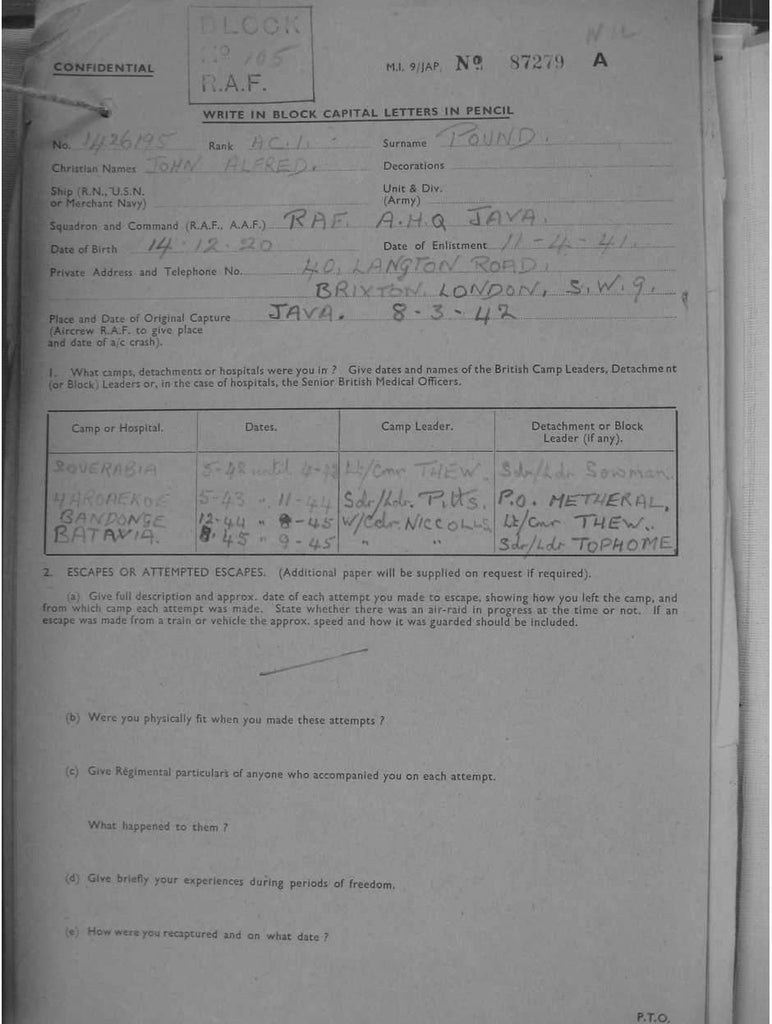 BLOCK
No 105
R.A.F.
NIL
CONFIDENTIAL
M.I. 9/JAP. No. 87279 A
WRITE IN BLOCK CAPITAL LETTERS IN PENCIL
No. 1426195 Rank AC.1. Surname POUND.
Christian Names JOHN ALFRED. Decorations
Ship (R.N., U.S.N. or Merchant Navy) Unit & Div. (Army)
Squadron and Command (R.A.F., A.A.F.) RAF. A.H.Q JAVA.
Date of Birth 14.12.20 Date of Enlistment 11-4-41.
Private Address and Telephone No. 40, LANGTON ROAD,
BRIXTON, LONDON, S.W.9.
Place and Date of Original Capture JAVA. 8-3-42
(Aircrew R.A.F. to give place
and date of a/c crash).
1. What camps, detachments or hospitals were you in ? Give dates and names of the British Camp Leaders, Detachment
(or Block) Leaders or, in the case of hospitals, the Senior British Medical Officers.
Camp or Hospital. Dates. Camp Leader. Detachment or Block Leader (if any).
SOUERABIA 5-42 until 4-43 Lt/Cmr THEW. Sdr/Ldr Sowman.
5-43 " 11-44 Sdr/Ldr. Pitts. P.O. METHERAL,
BANDONGE 12-44 " 8-45 W/Cdr NICCOLLS Lt/Cmr THEW.
BATAVIA. 8.45 " 9-45 " " Sdr/Ldr TOPHOME
2. ESCAPES OR ATTEMPTED ESCAPES. (Additional paper will be supplied on request if required).
(a) Give full description and approx. date of each attempt you made to escape, showing how you left the camp, and
from which camp each attempt was made. State whether there was an air-raid in progress at the time or not. If an
escape was made from a train or vehicle the approx. speed and how it was guarded should be included.
(b) Were you physically fit when you made these attempts ?
(c) Give Regimental particulars of anyone who accompanied you on each attempt.
What happened to them ?
(d) Give briefly your experiences during periods of freedom.
(e) How were you recaptured and on what date ?
P.T.O.